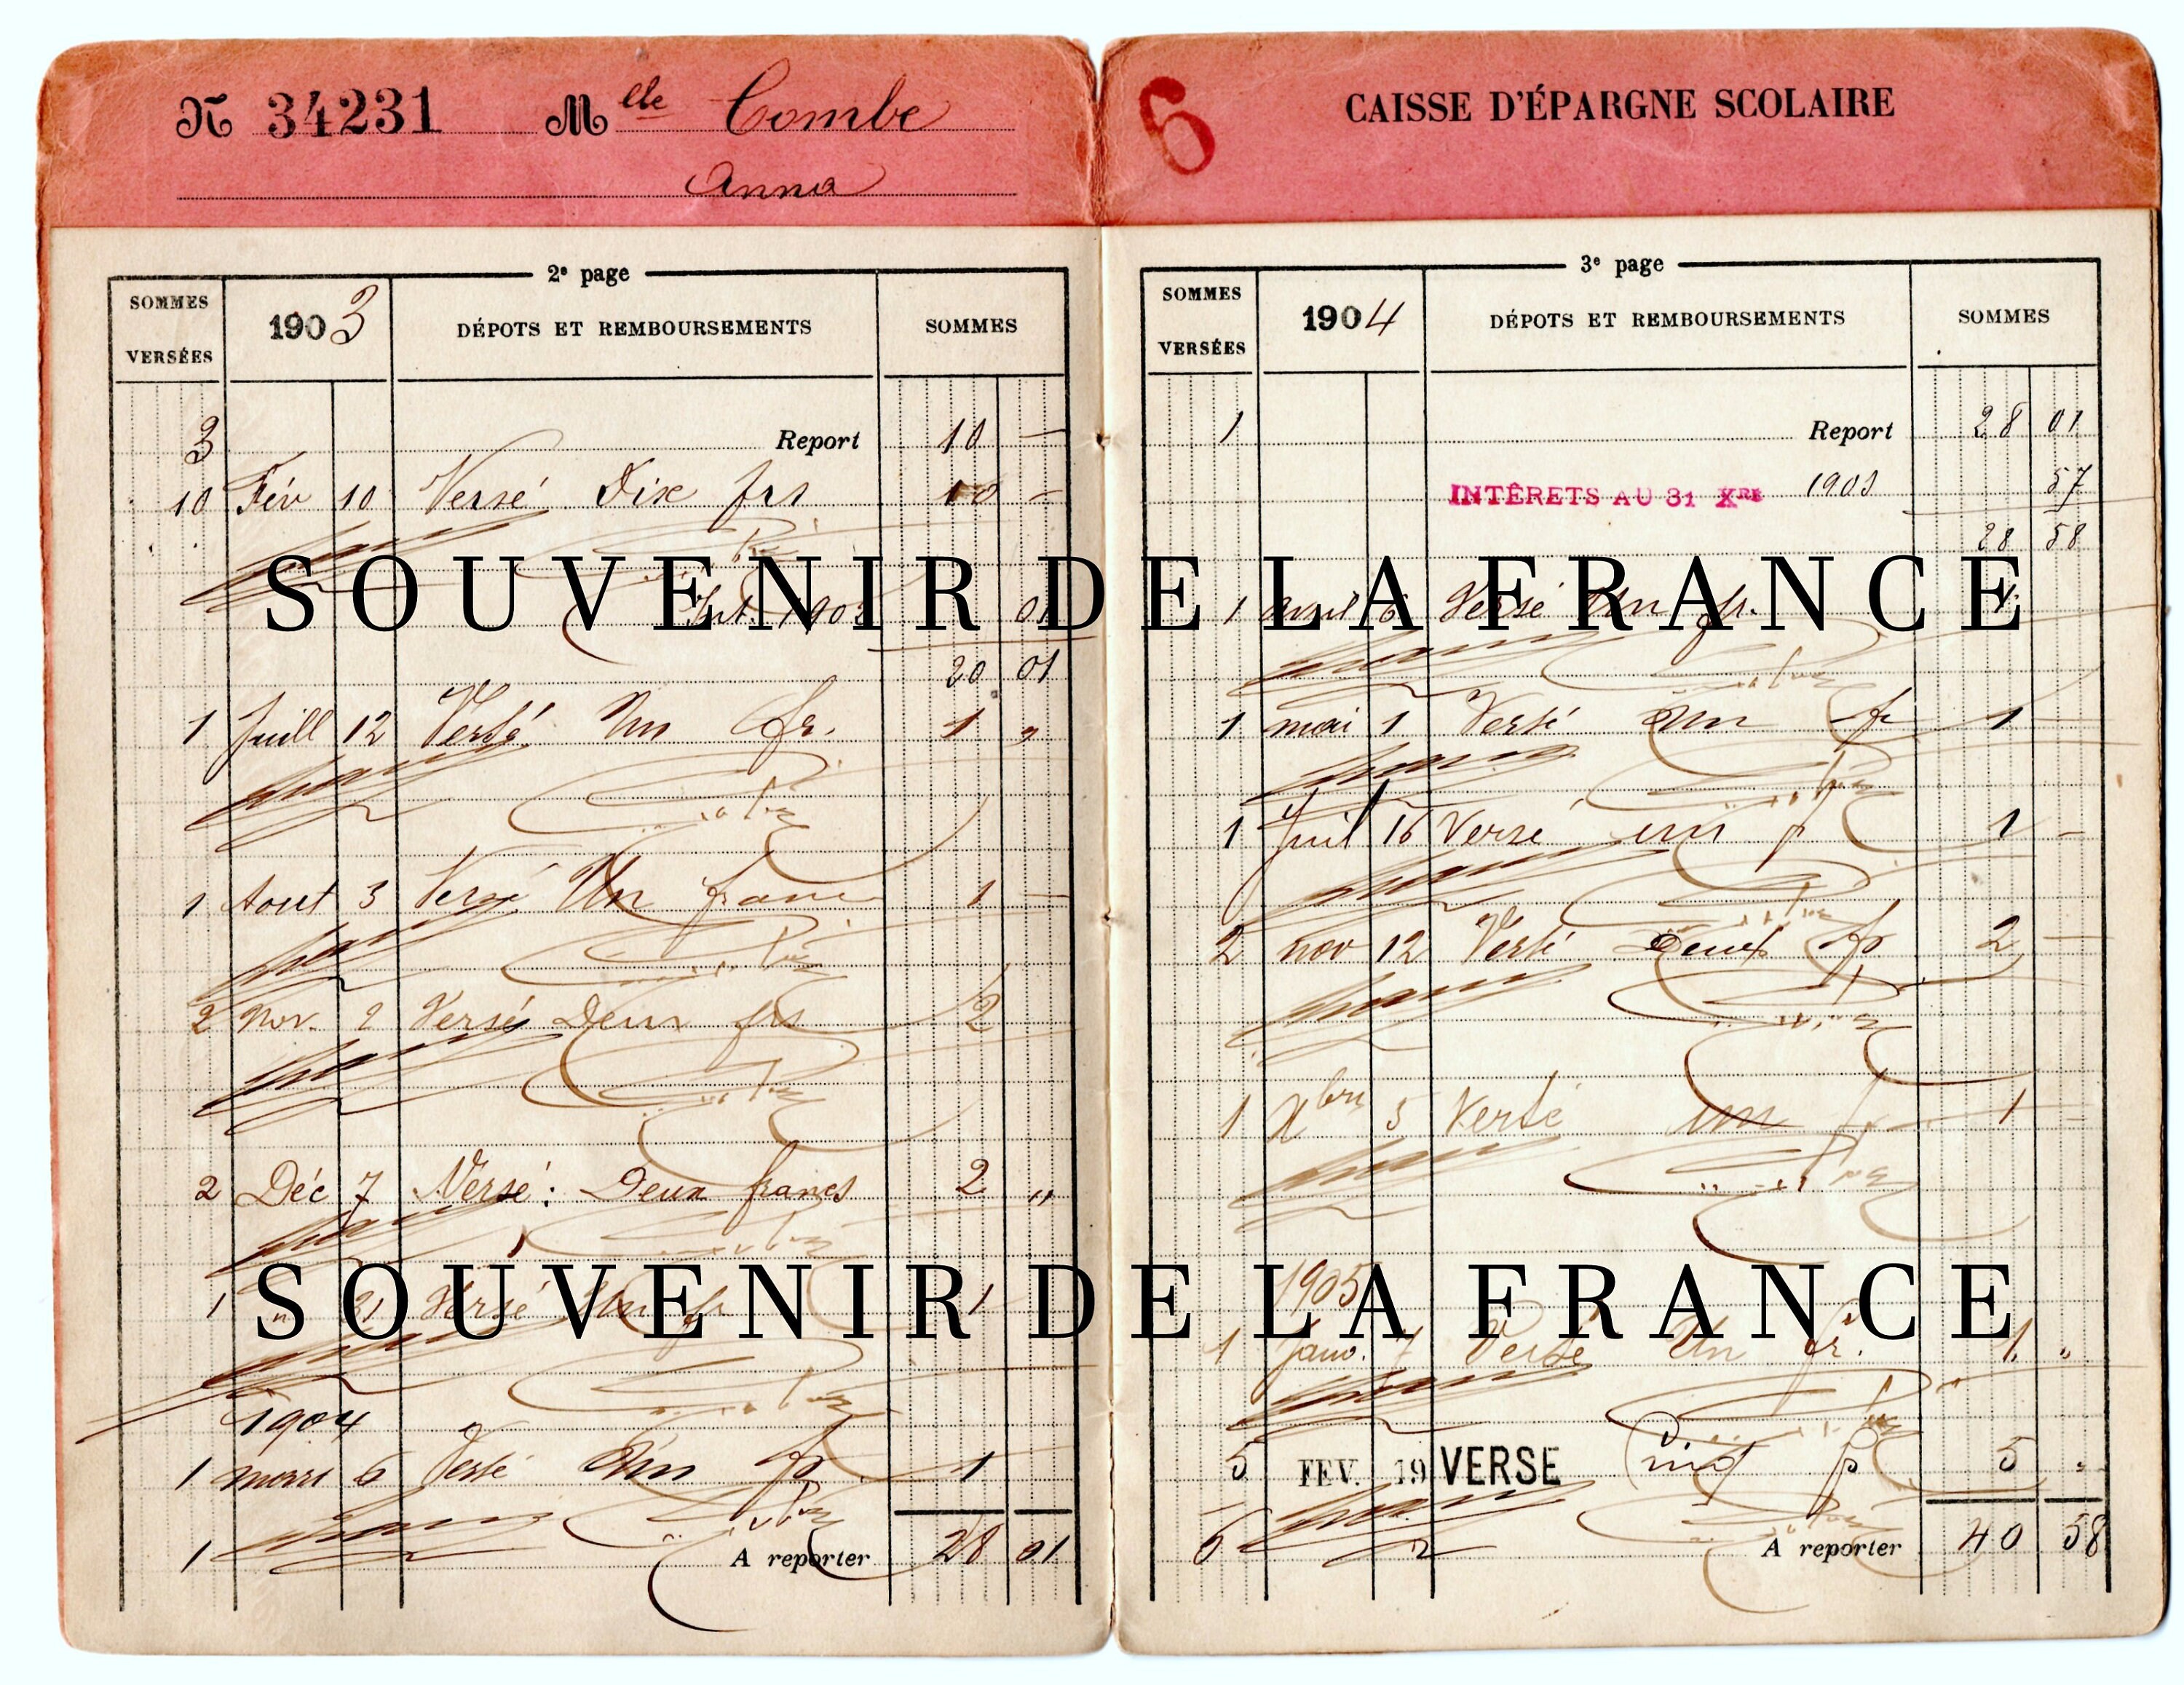 N 34231 Mlle Combe
Anna
2e page
SOMMES VERSÉES 1903 DÉPOTS ET REMBOURSEMENTS SOMMES
3 Report 10 —
10 Fév 10 Versé Dix frs 10 —
SOUVENIR DE LA FRANCE
Int. 1902 01
20 01
1 Juill 12 Versé Un fr. 1 "
1 Aout 3 Versé Un franc 1 —
2 Nov. 2 Versé Deux frs 2
2 Déc 7 Versé: Deux francs 2 "
SOUVENIR DE LA FRANCE
1 " 31 Versé Un fr 1
1904
1 mars 6 Versé Un fr 1
1 A reporter 28 01
6 CAISSE D'ÉPARGNE SCOLAIRE
3e page
SOMMES VERSÉES 1904 DÉPOTS ET REMBOURSEMENTS SOMMES
1 Report 28 01
INTÉRETS AU 31 XRE 1903 57
28 58
1 avril 6 Versé Un fr. 1
1 mai 1 Versé Un fr 1 —
1 Juil 16 Versé un f 1 —
2 nov 12 Versé Deux fr 2 —
1 Xbre 5 Versé un f 1 —
1905
1 Janv. 7 Versé Un fr. 1 "
5 FEV. 19 VERSE Cinq f 5 "
6 A reporter 40 58